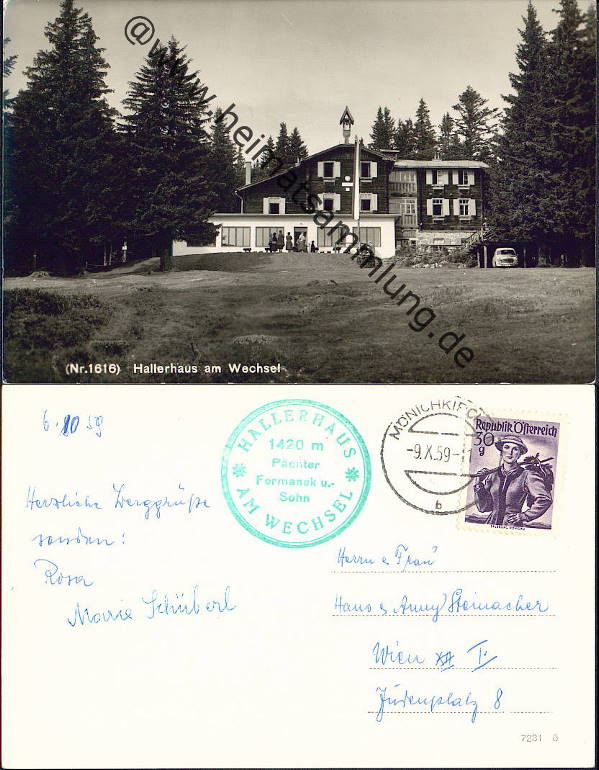 @www.heimatsammlung.de
(Nr.1616) Hallerhaus am Wechsel
6. 10 59
Herzliche Berggrüße
senden:
Rosa
Marie Schüberl
HALLERHAUS
1420 m
Pächter
Formanek u.
Sohn
AM WECHSEL
MÖNICHKIRCH
-9.X.59-1
b
Republik Österreich
30
g
Herrn u Frau
Hans u Anny Steinacher
Wien I.
Judenplatz 8
7281 ö